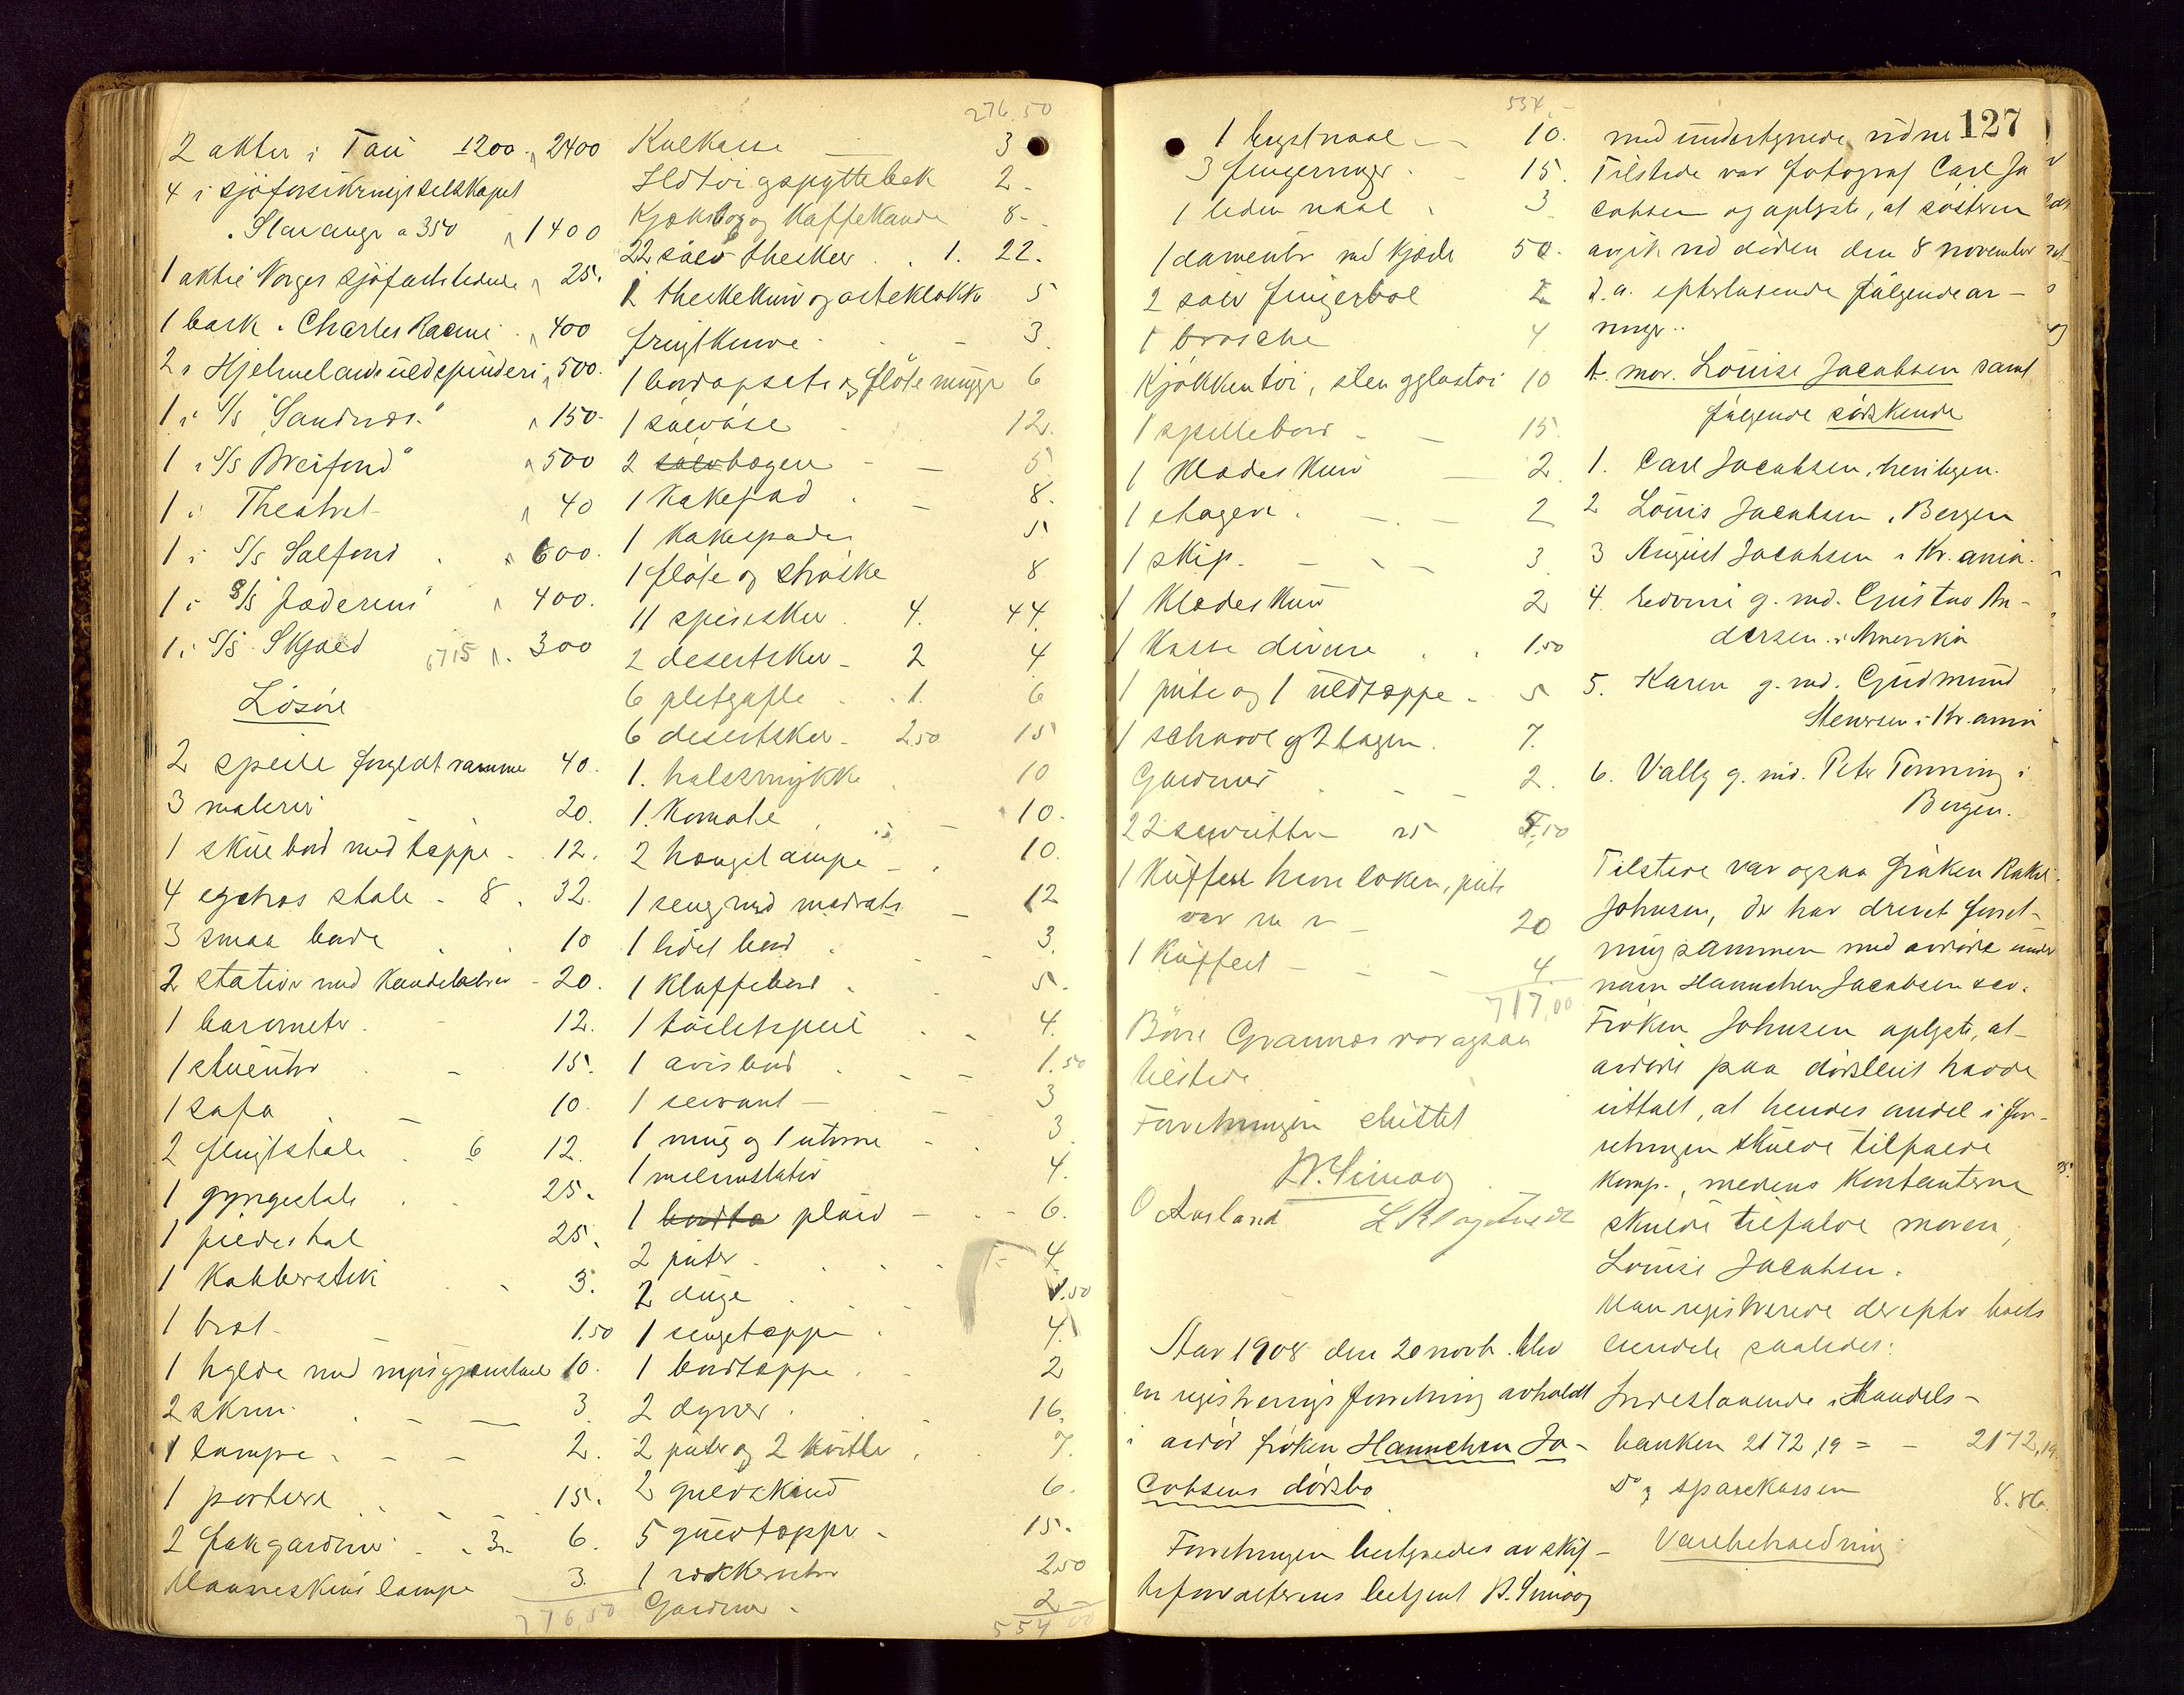 2 aktier i Tau 1200. " 2400
4 i sjöforsikringsselskapet
Stavanger a 350 " 1400
1 aktie Norges Sjöfartstidende " 25.
1 bark. Charles Racine " 400
2 i Hjelmelands uldspinderi " 500.
1 i S/S "Sandnæs" " 150.
1 i S/S Breifond" " 500
1 i Theatret " 40
1 i S/S Salfond " 600.
1 i S/S Jæderens " 400.
1 i S/S Skjold 6715 " 300
Lösöre
2 speile forgyldt ramme 40.
3 malerier 20.
1 skuebord med tæppe 12.
4 stole - 8. 32.
3 smaa borde 10
2 stativer med kandelabrer - 20.
1 barometer 12.
1 stueuhr 15.
1 sofa 10.
2 flugtstole 6 12.
1 gyngestol 25.
1 piedestal 25.
1 Kobberstik 3.
1 bræt 1.50
1 hylde med nipsgjenstande 10.
2 skrin 3
1 lampe 2.
1 portiere 15.
2 fakgardiner 3. 6.
Maaneskins lampe 3.
276,50
276,50
Kulkasse 3
Ildtöi og spyttebak 2.
Kjöks og Kaffekande 8.
22 sölv theskeer 1. 22.
1 theskekurv og osteklokke 5
frugtkurv 3.
1 bordopsats og flöte mugge 6
1 sölvöse 12.
2 sölv bægere 5
1 Kakefad 8.
1 Kakespade 5
1 flöte og ströske 8
11 spiseskeer 4. 44.
2 desertskeer 2 4
6 pletgafle 1. 6
6 desertskeer 2.50 15
1. halssmykke 10
1. Komode 10.
2 hængelampe 10.
1 seng med madrats 12
1 lidet bord 3.
1 Klaffebord 5.
1 toiletspeil 4.
1 avisbord 1.50
1 servant 3
1 mug og 1 3
1 4.
1 bordtæ plaid 6.
2 puter 4.
2 duge 1.50
1 sengetæppe 4.
1 bordtæppe 2
2 dyner 16.
2 puter og 2 kvitler 7.
2 gulvskind 6.
5 gulvtæpper 15.
1 2.50
Gardiner 2
554,00
554
1 brystnaal 10.
3 fingerringer 15.
1 liden naal 3
1 dameuhr med kjæde 50.
2 sölv fingerböl 2
1 brosche 4
Kjökkentöi, sten og glastöi 10
1 spillebord 15.
1 Klædeskurv 2
1 etagere 2
1 skip 3
1 Klædeskurv 2
1 Kasse diverse 1.50
1 pute og 1 uldtæppe 5
1 og 2 lagen 7.
Gardiner 2.
22 servietter 25 5.50
1 Kuffert lakener, pute
var m m 20
1 Kuffert 4
717,00
Börre Grannæs var ogsaa
tilstede
Forretningen sluttet
O Aarland
Aar 1908 den 20 novbr. blev
en registreringsforretning avholdt
i avdöd fröken Hannchen Ja-
cobsens dödsbo
Forretningen bestyredes av skif-
teforvalterens betjent
127
med undertegnede vidner
Tilstede var fotograf Carl Ja
cobsen og oplyste, at söstren
avgik ved döden den 8 november
d.a. efterlatende fölgende ar-
vinger..
1. mor. Louise Jacobsen samt
fölgende södskende
1. Carl Jacobsen, heribyen.
2 Louis Jacobsen i Bergen
3 August Jacobsen i Kr.ania.
4. g. med. Gustav An-
dersen i Amerika
5. Karen g. med. Gudmund
Stenersen i Kr.ania
6. Vally g. med. Peter Tonning i
Bergen.
Tilstede var ogsaa fröken Rakel
Johnsen, der har drevet forret-
ning sammen med avdöde under
navn Hannchen Jacobsen & co.
Fröken Johnsen oplyste, at
avdöde paa dödsleiet havde
uttalt, at hendes andel i for-
retningen skulde tilfalde
komp., medens kontanterne
skulde tilfalde moren,
Louise Jacobsen.
Man registrerede derefter boets
eiendele saaledes:
Indestaaende i Handels-
banken 2172,19 = - 2172,19
Do i sparekassen 8.86.
Varebeholdning